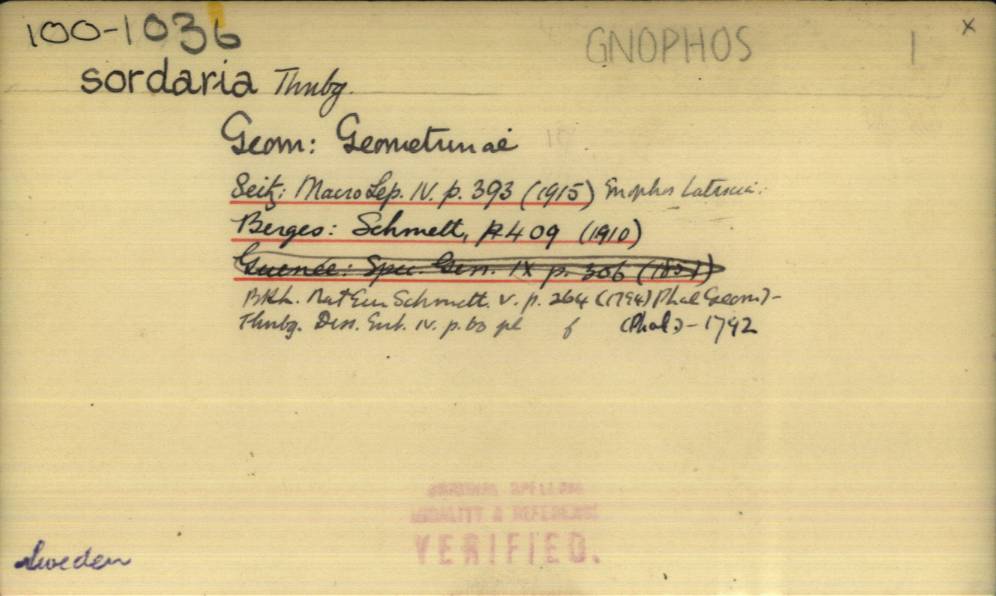 100-1036 GNOPHOS 1 x
sordaria Thnbg.
Geom: Geometrinae
Seitz: Macro Lep. IV. p. 393 (1915) Gnophos
Berges: Schmett, p. 409 (1910)
Guenée: Spec. Gen. IX p. 306 (1857)
Bkh. Nat Eur Schmett. V. p. 264 (1794) Phal Geom)-
Thnbg. Diss. Ent. IV. p. 60 pl f (Phal.)-1792
ORIGINAL SPELLING
LOCALITY & REFERENCE
VERIFIED.
Sweden